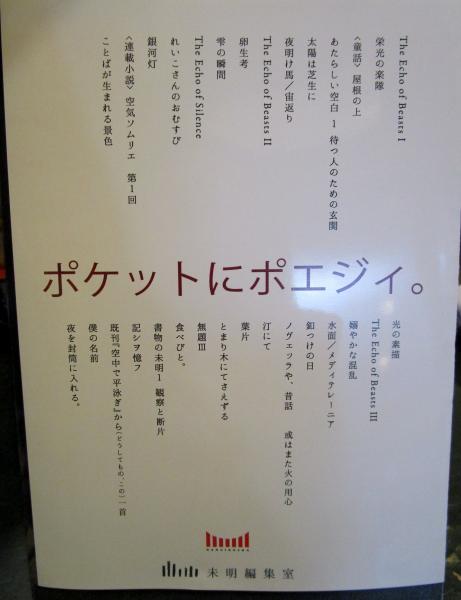 The Echo of Beasts I
栄光の楽隊
〈童話〉 屋根の上
あたらしい空白 1 待つ人のための玄関
太陽は芝生に
夜明け馬／宙返り
The Echo of Beasts II
卵生考
雫の瞬間
The Echo of Silence
れいこさんのおむすび
銀河灯
〈連載小説〉 空気ソムリエ 第1回
ことばが生まれる景色
ポケットにポエジィ。
光の素描
The Echo of Beasts III
嫋やかな混乱
水面／メディテレーニア
釦つけの日
ノヴェッラや、昔話 或はまた火の用心
汀にて
葉片
とまり木にてさえずる
無題III
食べびと。
書物の未明1 観察と断片
記シヲ憶フ
既刊『空中で平泳ぎ』から(どうしてもの、この)一首
僕の名前
夜を封筒に入れる。
未明編集室